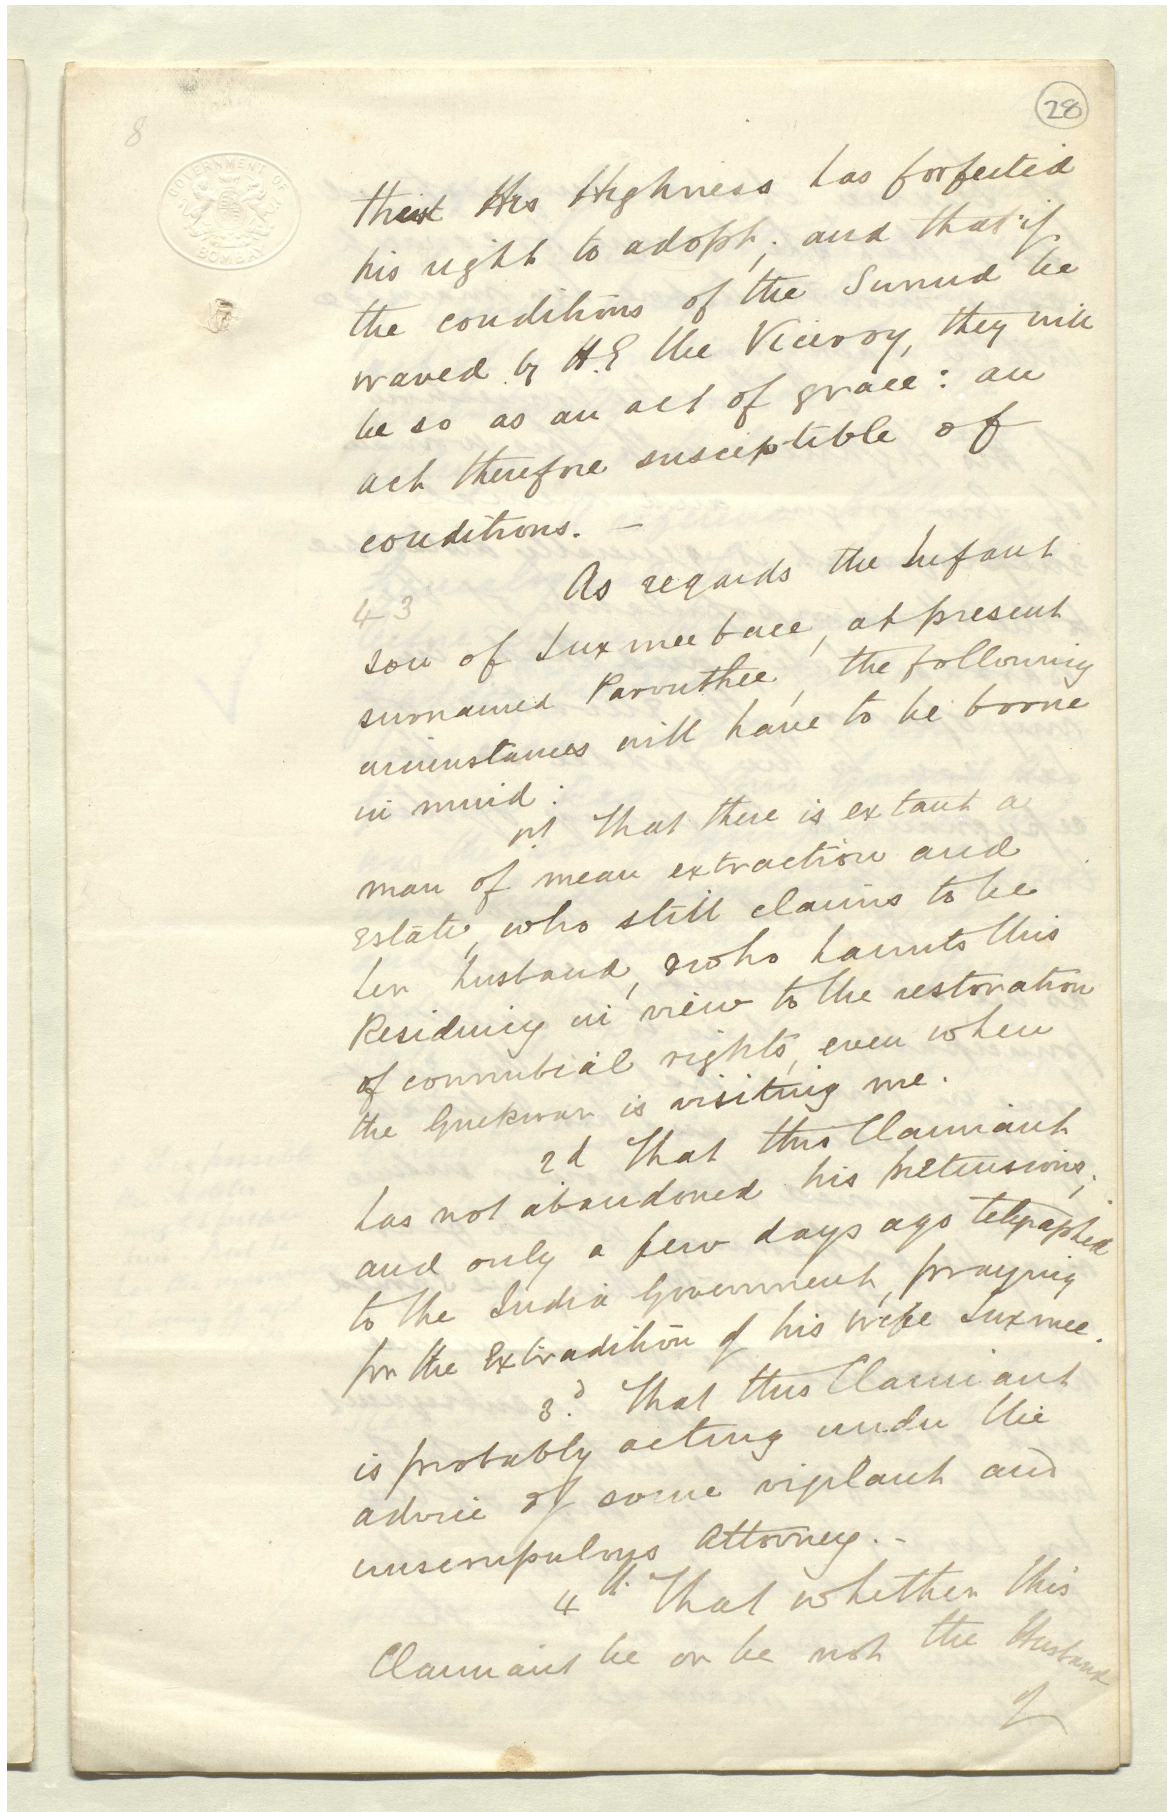 28
8
GOVERNMENT OF
BOMBAY
that His Highness has forfeited
his right to adopt; and that if
the conditions of the Sunnud be
waved by H.E the Viceroy, they will
be so as an act of grace: an
act therefore susceptible of
conditions. —
43 As regards the Infant
son of Luxmeebaee, at present
surnamed Parouthee, the following
circumstances will have to be borne
in mind:
1st That there is extant a
man of mean extraction and
Estate, who still claims to be
her husband, & who haunts this
Residency in view to the restoration
of connubial rights, even when
the Guekwar is visiting me.
2d That this Claimant
has not abandoned his pretensions;
and only a few days ago telegraphed
to the India Government, praying
for the Extradition of his wife Luxmee.
3.d That this Claimant
is probably acting under the
advice of some vigilant and
unscrupulous Attorney. -
4th. That whether this
Claimant be or be not the Husband
of